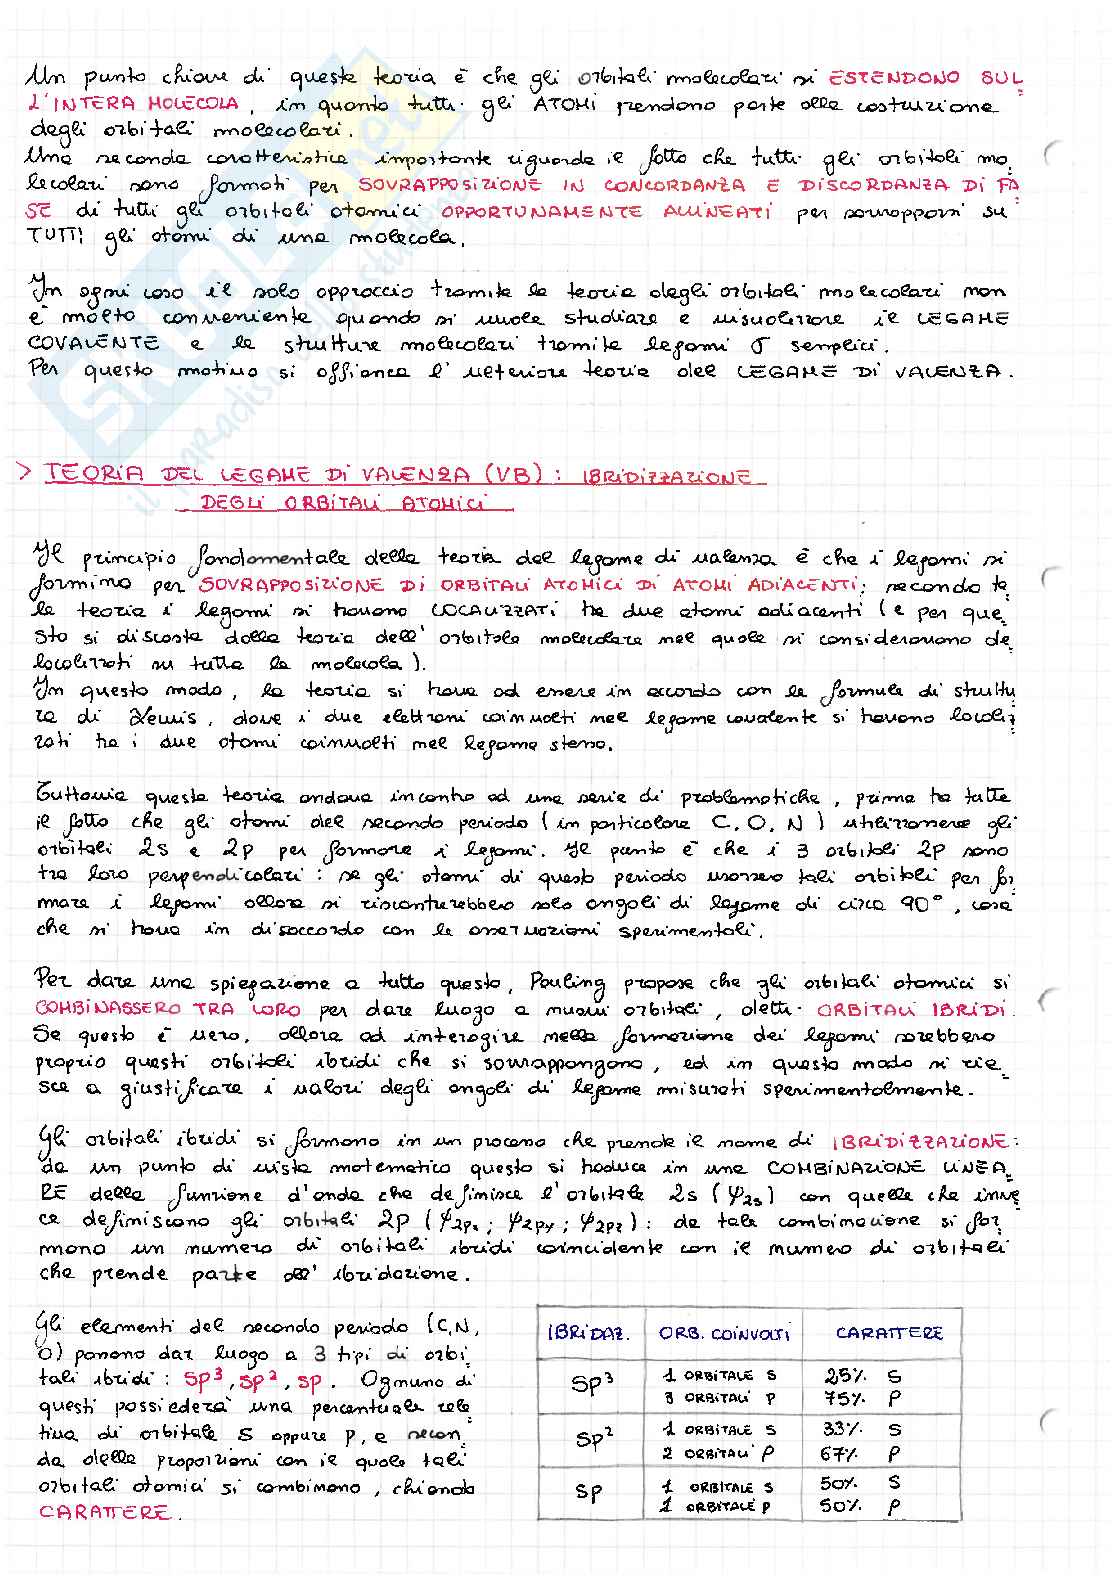 Un punto chiave di questa teoria è che gli orbitali molecolari si ESTENDONO SUL
L'INTERA MOLECOLA, in quanto tutti gli ATOMI prendono parte alla costruzione
degli orbitali molecolari.
Una seconda caratteristica importante riguarda il fatto che tutti gli orbitali mo
lecolari sono formati per SOVRAPPOSIZIONE IN CONCORDANZA E DISCORDANZA DI FA
SE di tutti gli orbitali atomici OPPORTUNAMENTE ALLINEATI per sovrapporsi su
TUTTI gli atomi di una molecola.
In ogni caso il solo approccio tramite la teoria degli orbitali molecolari non
è molto conveniente quando si vuole studiare e visualizzare il LEGAME
COVALENTE e le strutture molecolari tramite legami σ semplici.
Per questo motivo si affianca l'ulteriore teoria del LEGAME DI VALENZA.
> TEORIA DEL LEGAME DI VALENZA (VB): IBRIDIZZAZIONE
DEGLI ORBITALI ATOMICI
Il principio fondamentale della teoria del legame di valenza è che i legami si
formino per SOVRAPPOSIZIONE DI ORBITALI ATOMICI DI ATOMI ADIACENTI; secondo ta
le teoria i legami si trovano LOCALIZZATI tra due atomi adiacenti (e per que
sto si discosta dalla teoria dell'orbitale molecolare nel quale si consideravano de
localizzati su tutta la molecola).
In questo modo, la teoria si trova ad essere in accordo con le formule di struttu
ra di Lewis, dove i due elettroni coinvolti nel legame covalente si trovano localiz
zati tra i due atomi coinvolti nel legame stesso.
Tuttavia questa teoria andava incontro ad una serie di problematiche, prima tra tutte
il fatto che gli atomi del secondo periodo (in particolare C, O, N) utilizzassero gli
orbitali 2s e 2p per formare i legami. Il punto è che i 3 orbitali 2p sono
tra loro perpendicolari: se gli atomi di questo periodo usassero tali orbitali per for
mare i legami allora si riscontrerebbero solo angoli di legame di circa 90°, cosa
che si trova in disaccordo con le osservazioni sperimentali.
Per dare una spiegazione a tutto questo, Pauling propose che gli orbitali atomici si
COMBINASSERO TRA LORO per dare luogo a nuovi orbitali, detti ORBITALI IBRIDI.
Se questo è vero, allora ad interagire nella formazione dei legami sarebbero
proprio questi orbitali ibridi che si sovrappongono, ed in questo modo si rie
sce a giustificare i valori degli angoli di legame misurati sperimentalmente.
Gli orbitali ibridi si formano in un processo che prende il nome di IBRIDIZZAZIONE:
da un punto di vista matematico questo si traduce in una COMBINAZIONE LINEA
RE della funzione d'onda che definisce l'orbitale 2s (ψ2s) con quelle che inve
ce definiscono gli orbitali 2p (ψ2px; ψ2py; ψ2pz): da tale combinazione si for
mano un numero di orbitali ibridi coincidente con il numero di orbitali
che prende parte all'ibridazione.
Gli elementi del secondo periodo (C, N,
O) possono dar luogo a 3 tipi di orbi
tali ibridi: sp³, sp², sp. Ognuno di
questi possiederà una percentuale rela
tiva di orbitale s oppure p, e secon
da delle proporzioni con il quale tali
orbitali atomici si combinano, chiamata
CARATTERE.
IBRIDAZ. ORB. COINVOLTI CARATTERE
sp³ 1 ORBITALE S 25% S
3 ORBITALI P 75% P
sp² 1 ORBITALE S 33% S
2 ORBITALI P 67% P
sp 1 ORBITALE S 50% S
1 ORBITALE P 50% P